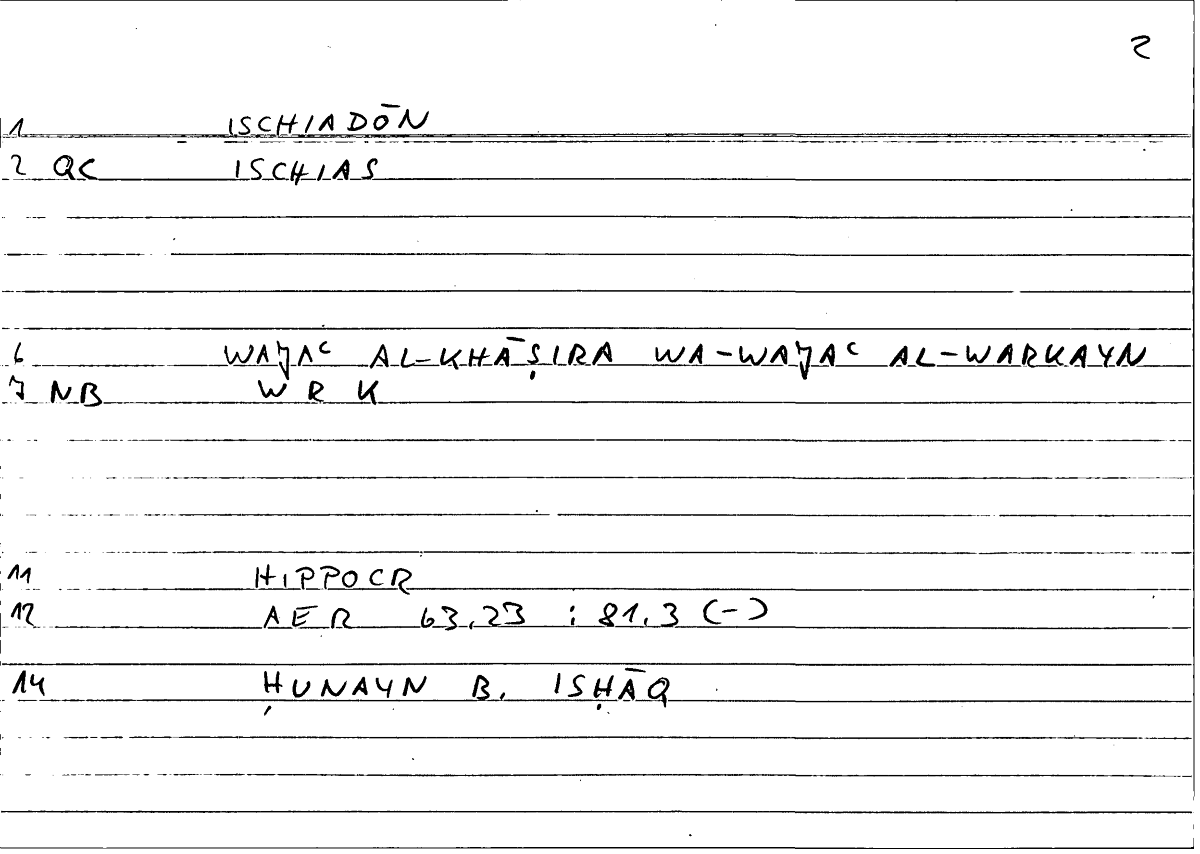 2
1 ISCHIADŌN
2 QC ISCHIAS
6 WAJAʿ AL-KHĀṢIRA WA-WAJAʿ AL-WARKAYN
7 NB W R K
11 HIPPOCR
12 AER 63,23 : 81,3 (-)
14 ḤUNAYN B. ISḤĀQ